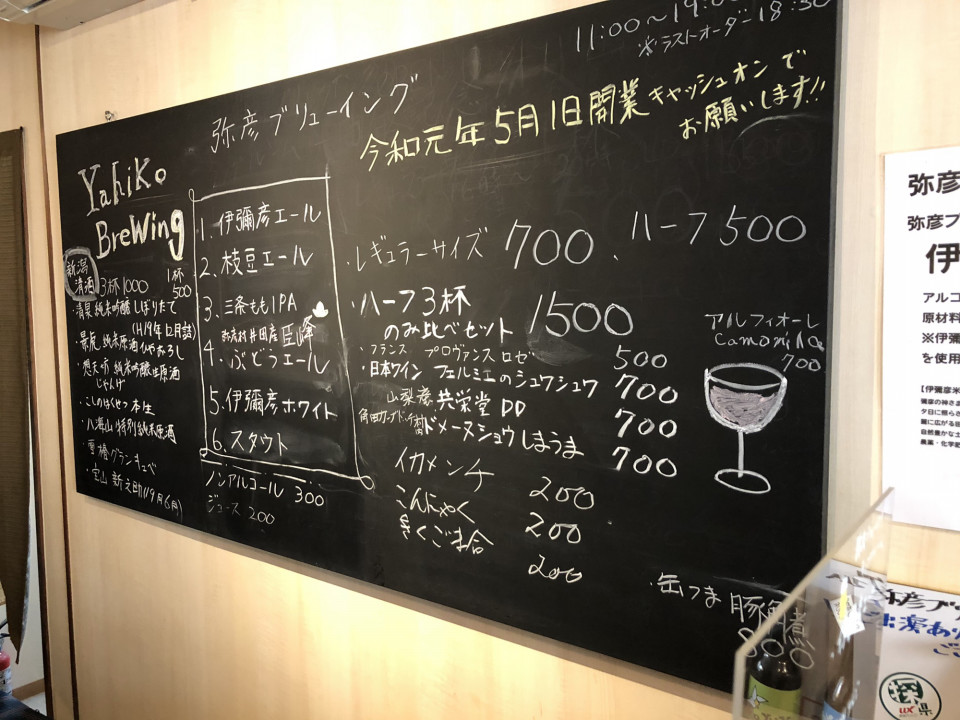 11:00〜19:00
※ラストオーダー18:30
弥彦ブリューイング
今和元年5月1日開業
キャッシュオンで
お願いします!!
Yahiko
BreWing
新潟
清酒 3杯1000 1杯500
・清泉 純米吟醸 しぼりたて
・景虎 純米原酒 ひやおろし
・想天坊 純米吟醸生原酒
じゃんげ
・こしのはくせつ 本生
・八海山 特別純米原酒
・雪椿グランキュベ
・宝山 新之助
1. 伊彌彦エール
2. 枝豆エール
3. 三条ももIPA
弥彦村井田産
4. ぶどうエール
5. 伊彌彦ホワイト
6. スタウト
ノンアルコール 300
ジュース 200
・レギュラーサイズ 700、ハーフ500
・ハーフ3杯
のみ比べセット 1500
・フランス プロヴァンス ロゼ 500
・日本ワイン フェルミエのシュワシュワ 700
山梨産 共栄堂 DD 700
ドメーヌショウ しまうま 700
イカメンチ 200
こんにゃく 200
きくごま合 200
アルフィオーレ
700
・缶つま 豚角煮
800
弥彦
弥彦ブ
伊
アルコ
原材料
※伊彌
を使用
【伊彌彦米
彌彦の神さま
夕日に照らさ
麓に広がる田
自然豊かな土
農薬・化学肥
UX
県